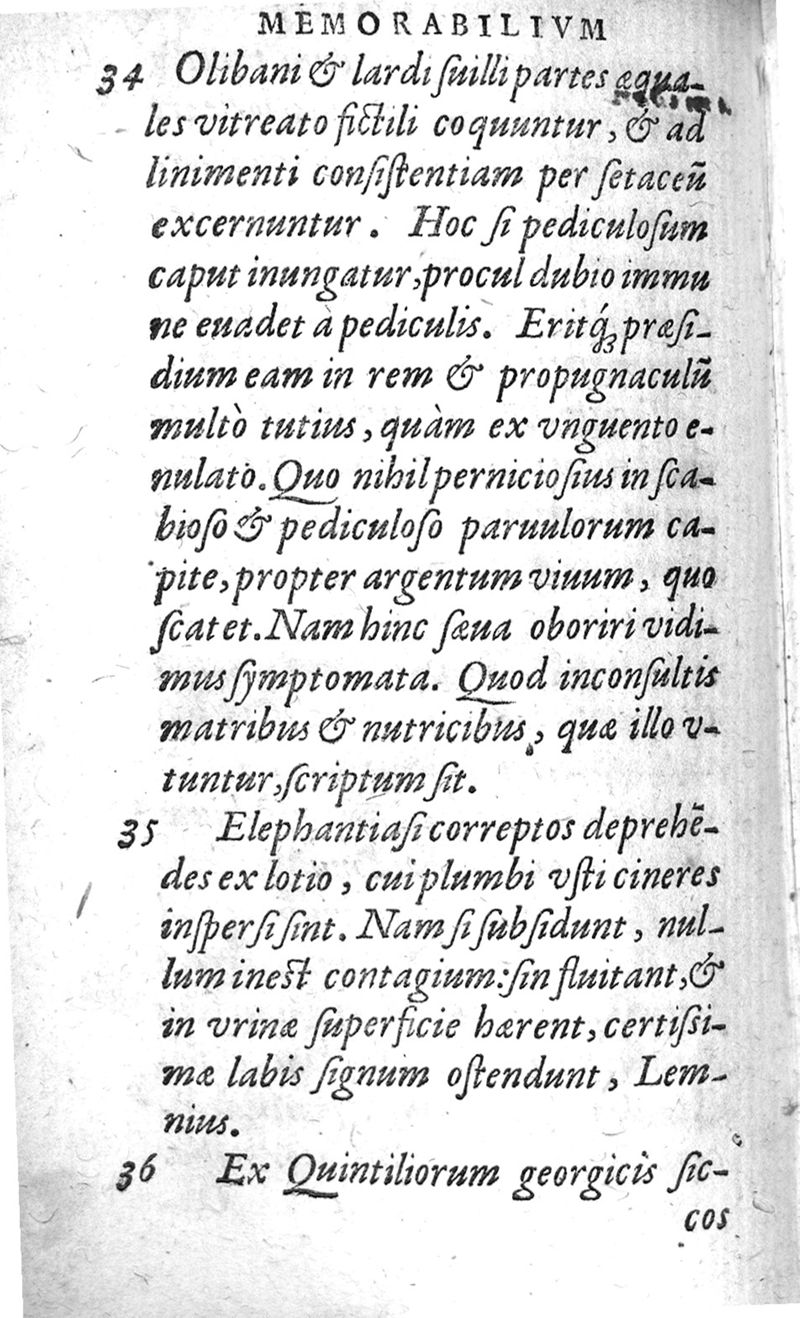 MEMORABILIVM
34 Olibani & lardi ſuilli partes æqua-
les vitreato fictili coquuntur, & ad
linimenti conſiſtentiam per ſetaceũ
excernuntur. Hoc ſi pediculoſum
caput inungatur, procul dubio immu
ne euadet à pediculis. Eritq́ꝫ præſi-
dium eam in rem & propugnaculũ
multò tutius, quàm ex vnguento e-
nulato. Quo nihil pernicioſius in ſca-
bioſo & pediculoſo paruulorum ca-
pite, propter argentum viuum, quo
ſcatet. Nam hinc ſæua oboriri vidi-
mus ſymptomata. Quod inconſultis
matribus & nutricibus, quæ illo v-
tuntur, ſcriptum ſit.
35 Elephantiaſi correptos deprehẽ-
des ex lotio, cui plumbi vſti cineres
inſperſi ſint. Nam ſi ſubſidunt, nul-
lum ineſt contagium: ſin fluitant, &
in vrinæ ſuperficie hærent, certiſsi-
mæ labis ſignum oſtendunt, Lem-
nius.
36 Ex Quintiliorum georgicis ſic-
cos